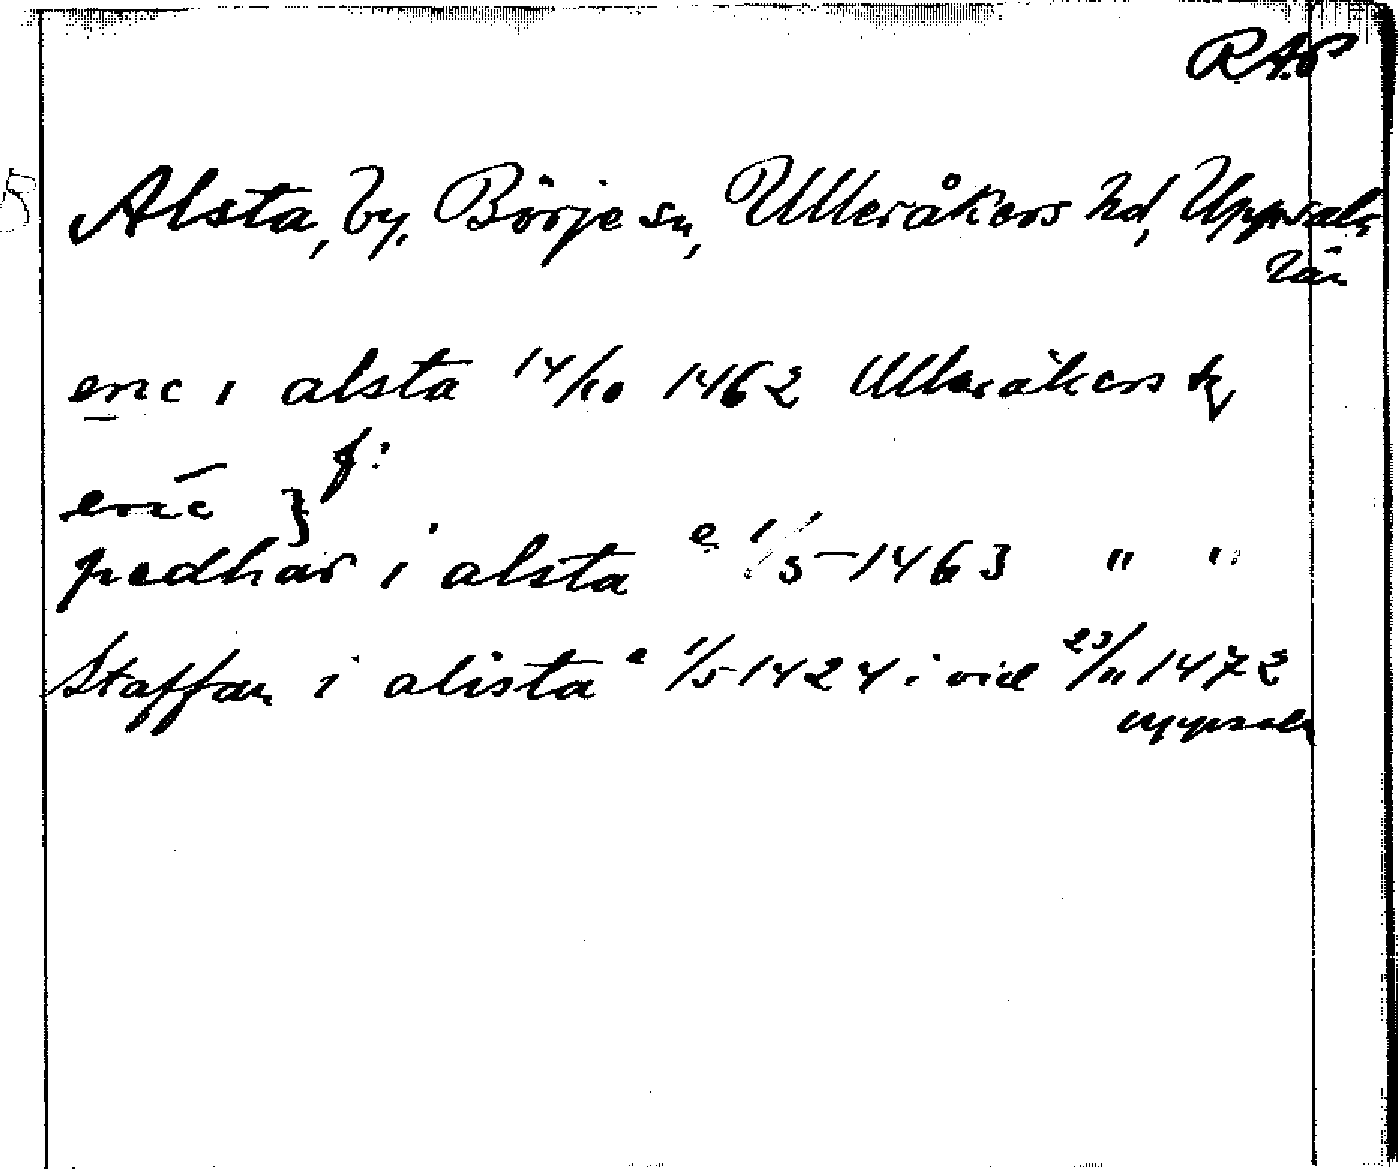 RAP
Alsta, by, Börje sn, Ulleråkers hd, Uppsala
län
eric i alsta 14/10 1462 Ulleråkers
f:
eric }
pedhar i alsta e 1/5 1463 " "
Staffan i alista e 1/5 1424 i vid 23/11 1472
Uppsala